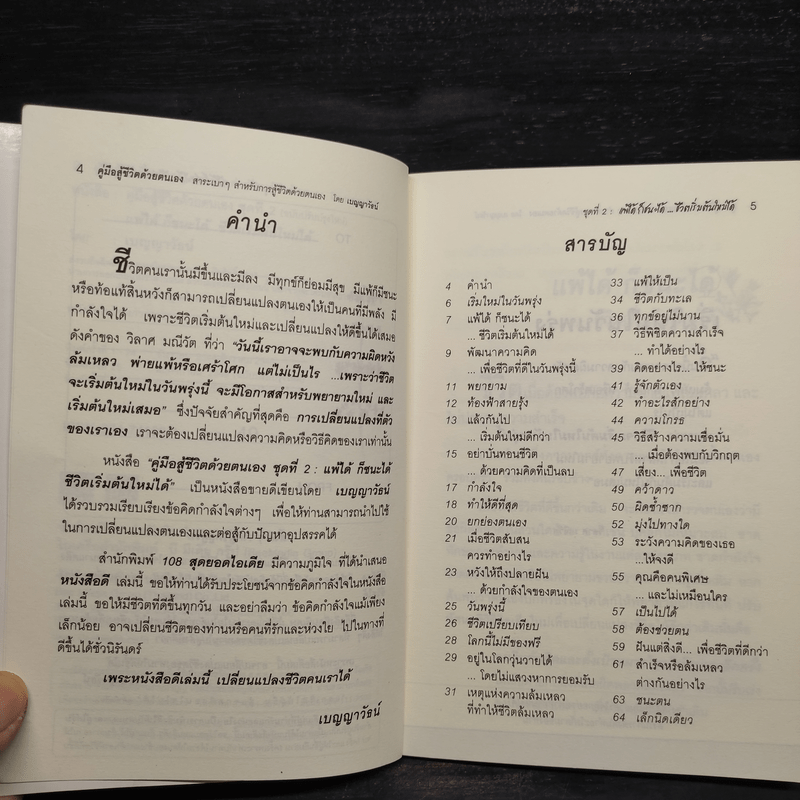 4 คู่มือสู้ชีวิตด้วยตนเอง สาระเบาๆ สำหรับการสู้ชีวิตด้วยตนเอง โดย เบญญาวัธน์
คำนำ
ชีวิตคนเรานั้นมีขึ้นและมีลง มีทุกข์ก็ย่อมมีสุข มีแพ้ก็มีชนะ
หรือท้อแท้สิ้นหวังก็สามารถเปลี่ยนแปลงตนเองให้เป็นคนที่มีพลัง มี
กำลังใจได้ เพราะชีวิตเริ่มต้นใหม่และเปลี่ยนแปลงให้ดีขึ้นได้เสมอ
ดังคำของ วิลาศ มณีวัต ที่ว่า "วันนี้เราอาจจะพบกับความผิดหวัง
ล้มเหลว พ่ายแพ้หรือเศร้าโศก แต่ไม่เป็นไร ...เพราะว่าชีวิต
จะเริ่มต้นใหม่ในวันพรุ่งนี้ จะมีโอกาสสำหรับพยายามใหม่ และ
เริ่มต้นใหม่เสมอ" ซึ่งปัจจัยสำคัญที่สุดคือ การเปลี่ยนแปลงที่ตัว
ของเราเอง เราจะต้องเปลี่ยนแปลงความคิดหรือวิธีคิดของเราเท่านั้น
หนังสือ "คู่มือสู้ชีวิตด้วยตนเอง ชุดที่ 2 : แพ้ได้ ก็ชนะได้
ชีวิตเริ่มต้นใหม่ได้" เป็นหนังสือขายดีเขียนโดย เบญญาวัธน์
ได้รวบรวมเรียบเรียงข้อคิดกำลังใจต่างๆ เพื่อให้ท่านสามารถนำไปใช้
ในการเปลี่ยนแปลงตนเองและต่อสู้กับปัญหาอุปสรรคได้
สำนักพิมพ์ 108 สุดยอดไอเดีย มีความภูมิใจ ที่ได้นำเสนอ
หนังสือดี เล่มนี้ ขอให้ท่านได้รับประโยชน์จากข้อคิดกำลังใจในหนังสือ
เล่มนี้ ขอให้มีชีวิตที่ดีขึ้นทุกวัน และอย่าลืมว่า ข้อคิดกำลังใจแม้เพียง
เล็กน้อย อาจเปลี่ยนชีวิตของท่านหรือคนที่รักและห่วงใย ไปในทางที่
ดีขึ้นได้ชั่วนิรันดร์
เพระหนังสือดีเล่มนี้ เปลี่ยนแปลงชีวิตคนเราได้
เบญญาวัธน์
ชุดที่ 2 : แพ้ได้ ก็ชนะได้ ...ชีวิตเริ่มต้นใหม่ได้ 5
สารบัญ
4 คำนำ
6 เริ่มใหม่ในวันพรุ่ง
7 แพ้ได้ ก็ชนะได้
... ชีวิตเริ่มต้นใหม่ได้
9 พัฒนาความคิด
... เพื่อชีวิตที่ดีในวันพรุ่งนี้
11 พยายาม
12 ท้องฟ้าสายรุ้ง
13 แล้วกันไป
... เริ่มต้นใหม่ดีกว่า
15 อย่าบั่นทอนชีวิต
... ด้วยความคิดที่เป็นลบ
17 กำลังใจ
18 ทำให้ดีที่สุด
20 ยกย่องตนเอง
21 เมื่อชีวิตสับสน
ควรทำอย่างไร
23 หวังให้ถึงปลายฝัน
... ด้วยกำลังใจของตนเอง
25 วันพรุ่งนี้
26 ชีวิตเปรียบเทียบ
28 โลกนี้ไม่มีของฟรี
29 อยู่ในโลกวุ่นวายได้
... โดยไม่แสวงหาการยอมรับ
31 เหตุแห่งความล้มเหลว
ที่ทำให้ชีวิตล้มเหลว
33 แพ้ให้เป็น
34 ชีวิตกับทะเล
36 ทุกข์อยู่ไม่นาน
37 วิธีพิชิตความสำเร็จ
... ทำได้อย่างไร
39 คิดอย่างไร... ให้ชนะ
41 รู้จักตัวเอง
42 ทำอะไรสักอย่าง
44 ความโกรธ
45 วิธีสร้างความเชื่อมั่น
... เมื่อต้องพบกับวิกฤต
47 เสี่ยง... เพื่อชีวิต
49 คว้าดาว
50 ผิดซ้ำซาก
52 มุ่งไปทางใด
53 ระวังความคิดของเธอ
...ให้จงดี
55 คุณคือคนพิเศษ
... และไม่เหมือนใคร
57 เป็นไปได้
58 ต้องช่วยตน
59 ฝันแต่สิ่งดี... เพื่อชีวิตที่ดีกว่า
61 สำเร็จหรือล้มเหลว
ต่างกันอย่างไร
63 ชนะตน
64 เล็กนิดเดียว